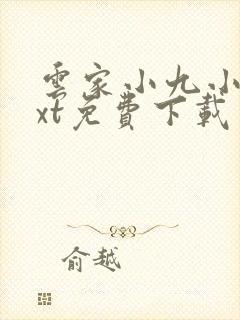 雲家小九小
xt免費下載
俞越